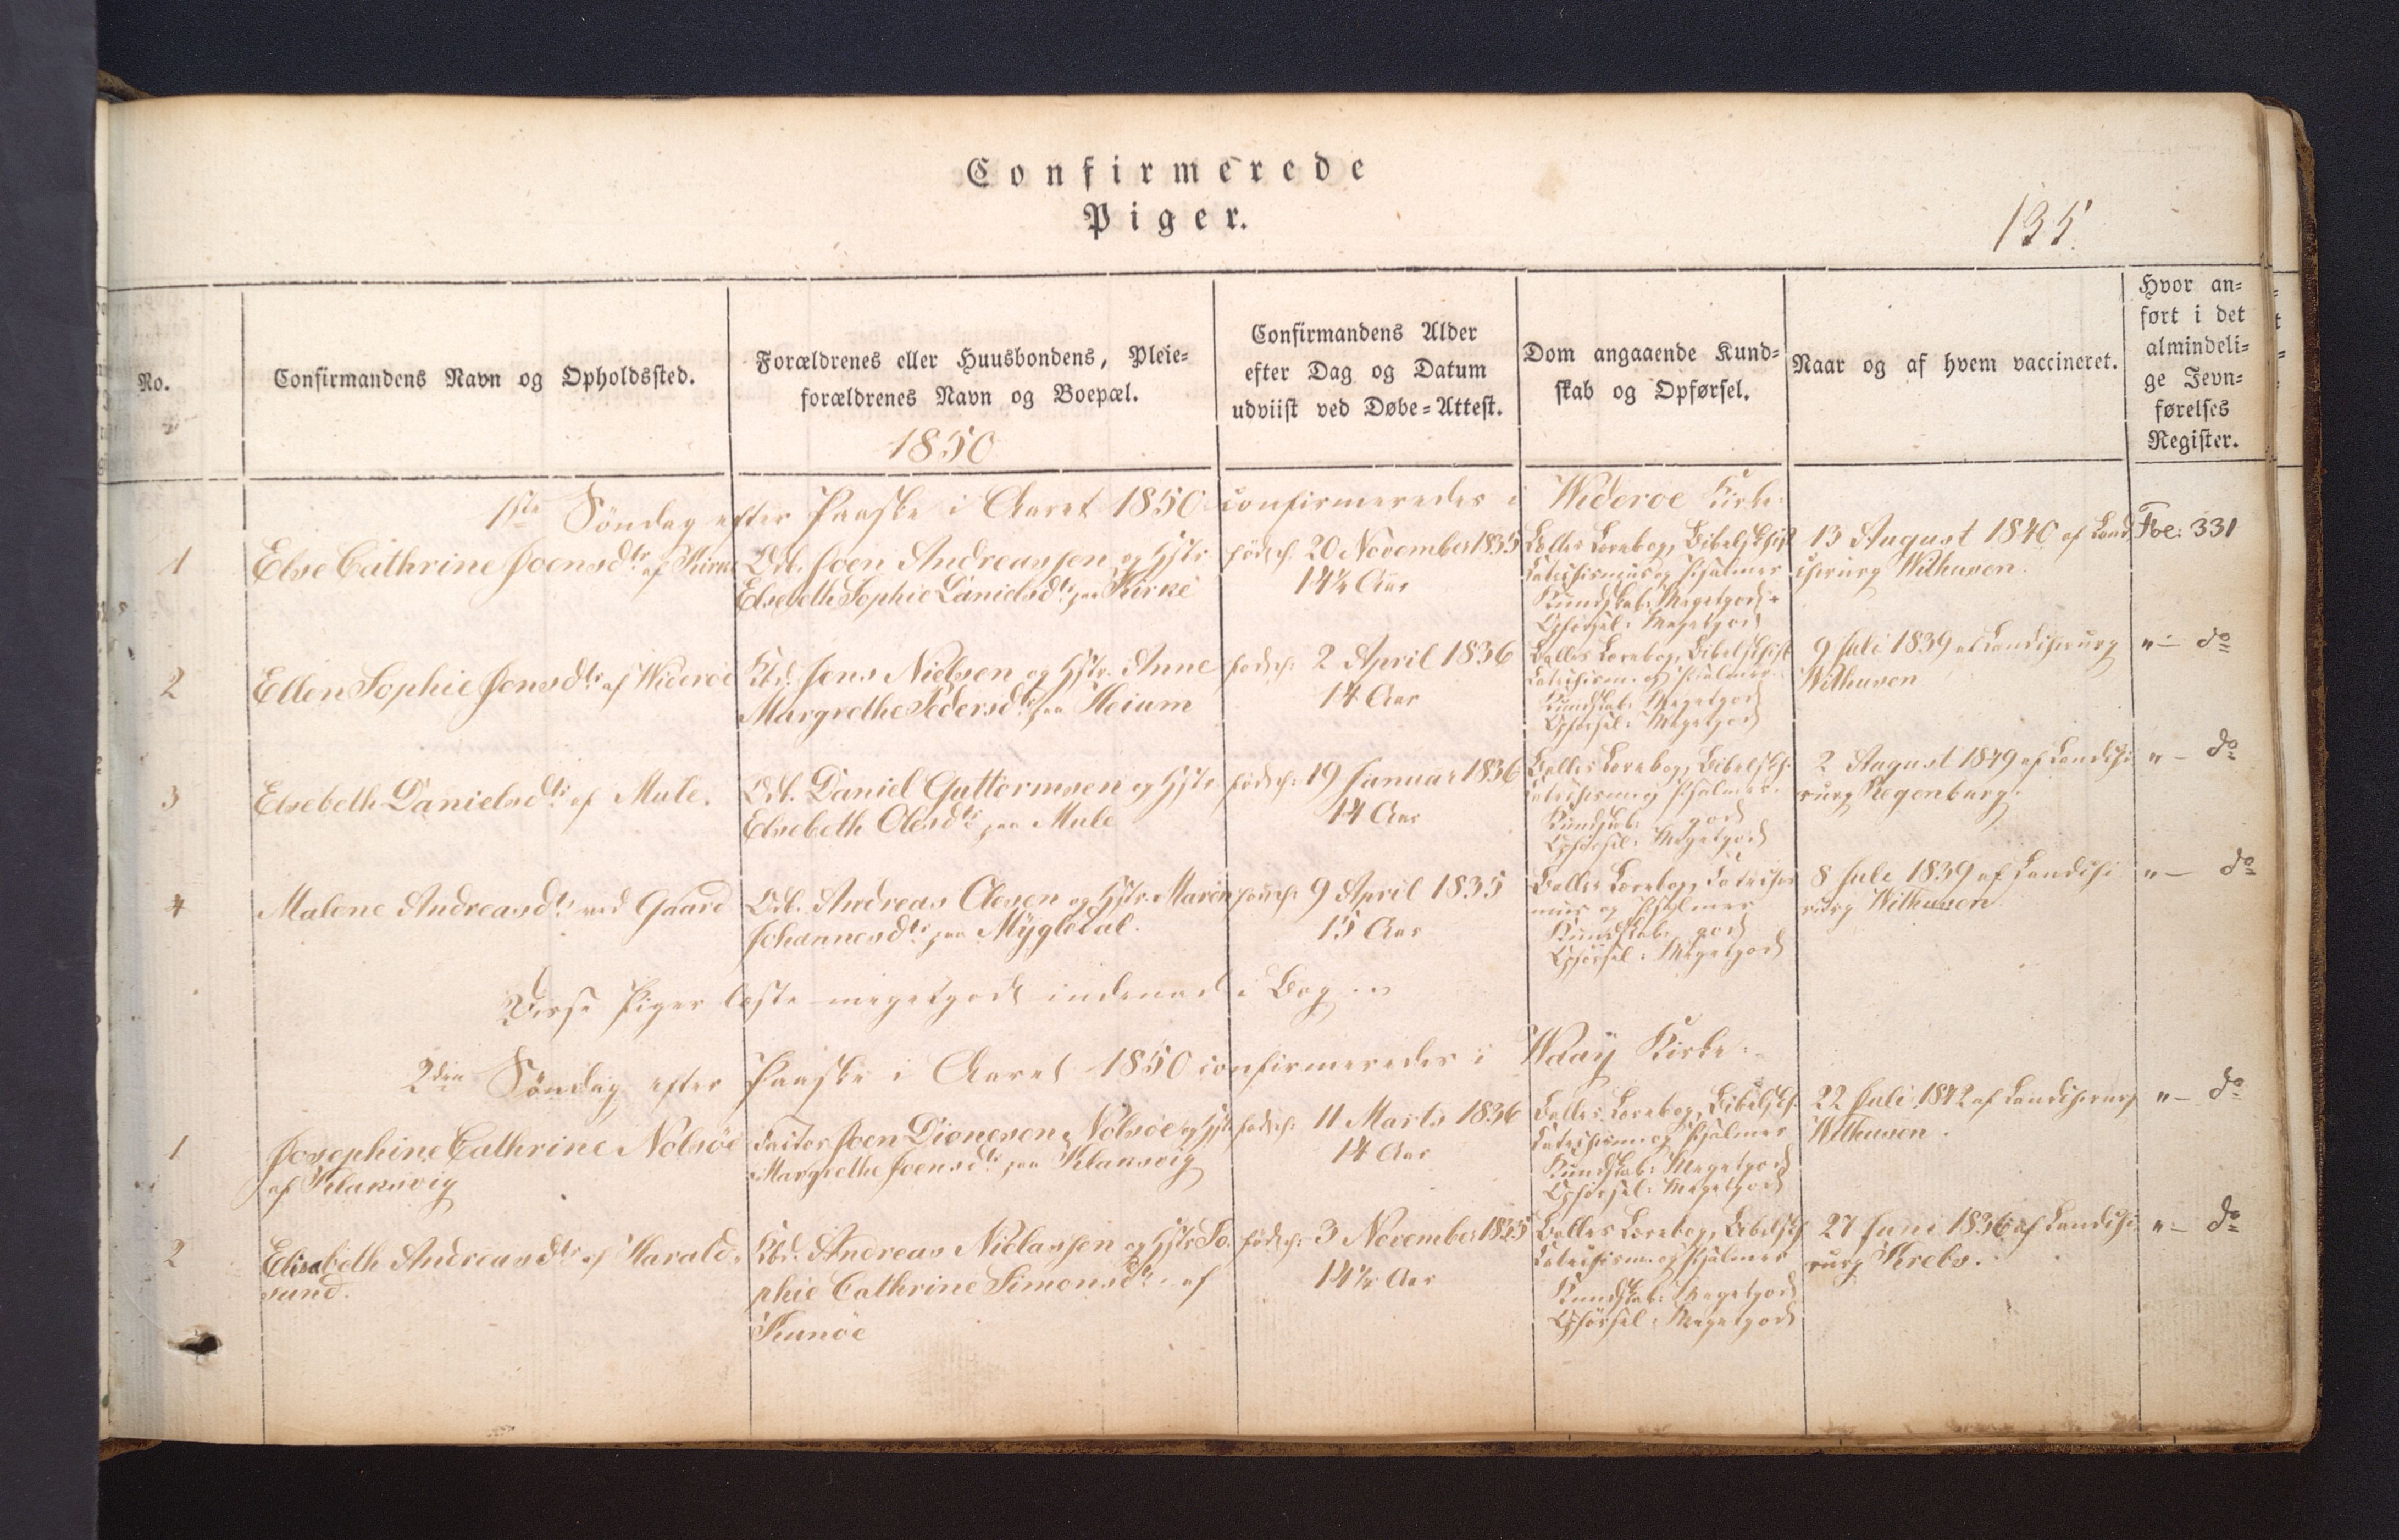 Confirmerede
Piger.
135.
No.
Confirmandens Navn og Opholdssted.
Forældrenes eller Huusbondens, Pleie=
forældrenes Navn og Boepæl.
Confirmandens Alder
efter Dag og Datum
udviist ved Døbe=Attest.
Dom angaaende Kund=
skab og Opførsel.
Naar og af hvem vaccineret.
Hvor an=
ført i det
almindeli=
ge Jevn=
førelses
Register.
1850
1ste Söndag efter Paaske i Aaret 1850 confirmeredes i Wideroe Kirke:
1
Else Cathrine Joensdtr af Kirke
Odb. Joen Andreassen og Hstr
Elsebeth Sophie Danielsdtr paa Kirke
födt d. 20 November 1835
14½ Aar
Balles Lærebog, Bibelhist
Catechismus og Psalmer
Kundskab: Megetgod
Opförsel: Megetgod
13 August 1840 af Land
chirurg Withusen.
Foe: 331
2
Ellen Sophie Jensdtr af Wideroe
Kbd. Jens Nielsen og Hstr. Anne
Margrethe Pedersdtr paa Heium
födt d: 2 April 1836
14 Aar
Balles Lærebog, Bibelhist
Catechism. og Psalmer.
Kundskab: Megetgod
Opförsel: Megetgod
9 Juli 1839 af Landchirurg
Withusen
"— do
3
Elsebeth Danielsdtr af Mule.
Odb. Daniel Guttormsen og Hstr
Elsebeth Olesdtr paa Mule
födt d: 19 Januar 1836
14 Aar
Balles Lærebog, Bibelh.
Catechism. og Psalmer.
Kundskab: god
Opförsel: Megetgod
2 August 1849 af Landchi
rurg Regenburg.
"— do
4
Malene Andreasdtr ved Gaard
Odb. Andreas Olesen og Hstr. Maren
Johannesdtr paa Mygledal.
födt d: 9 April 1835
15 Aar
Balles Lærebog, Catechis
mus og Psalmer
Kundskab: god
Opförsel: Megetgod
8 Juli 1839 af Landchi
rurg Withusen
"— do
Disse Piger læste megetgodt indenad i Bog.
2den Söndag efter Paaske i Aaret 1850 confirmeredes i Waaÿ Kirke:
1
Josephine Cathrine Nolsöe
af Klaksvig
Factor Joen Dionesen Nolsöe og Hstr
Margrethe Joensdtr paa Klaksvig
födt d: 11 Marts 1836
14 Aar
Balles Lærebog, Bibelh.
Catechism. og Psalmer
Kundskab: Megetgod
Opförsel: Megetgod
22 Juli 1842 af Landchirurg
Withusen.
"— do
2
Elisabeth Andreasdtr af Harald-
sund.
Kbd. Andreas Niclassen og Hstr So-
phie Cathrine Simonsdtr. af
Kunöe
födt d: 3 November 1835
14½ Aar
Balles Lærebog, Bibelh
Catechism. og Psalmer
Kundskab: Megetgod
Opförsel: Megetgod
27 Juni 1836 af Landchi
rurg Krebs.
"— do